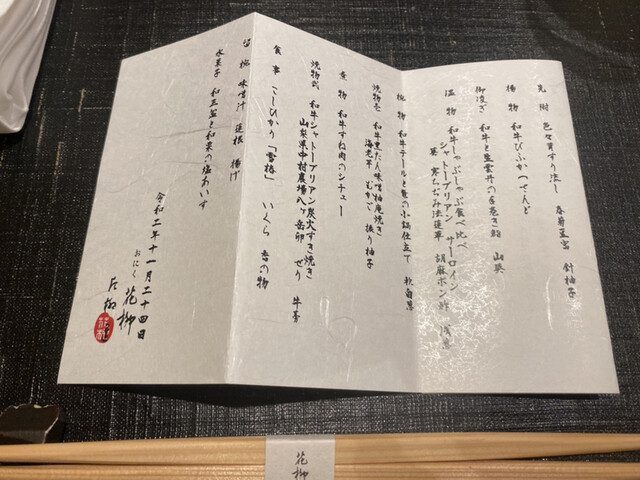 先附 色々胥すり流し 春菊豆富 針柚子
椀物 和牛びふかつせんど
御凌ぎ 和牛と生雲丹の手巻き鮨 山葵
温物 和牛しゃぶしゃぶ食べ比べ
シャトーブリアン サーロイン
寒ちぢみ法蓮草 胡麻ポン酢 浅葱
椀物 和牛テールと葱の小鍋仕立て 秋白葱
焼物壱 和牛うだり味噌柚庵焼き
海老芋 むかご 振り柚子
煮物 和牛すね肉のシチュー
焼物弐 和牛シャトーブリアン炭火すき焼き
山梨県中村農場八ヶ岳卵 せり 牛蒡
食事 こしひかり「雪椿」 いくら 香の物
留椀 味噌汁 蓮根 揚げ
水菓子 和三盆と和栗の塩あいす
令和二年十一月二十四日
おにく 花柳
花柳